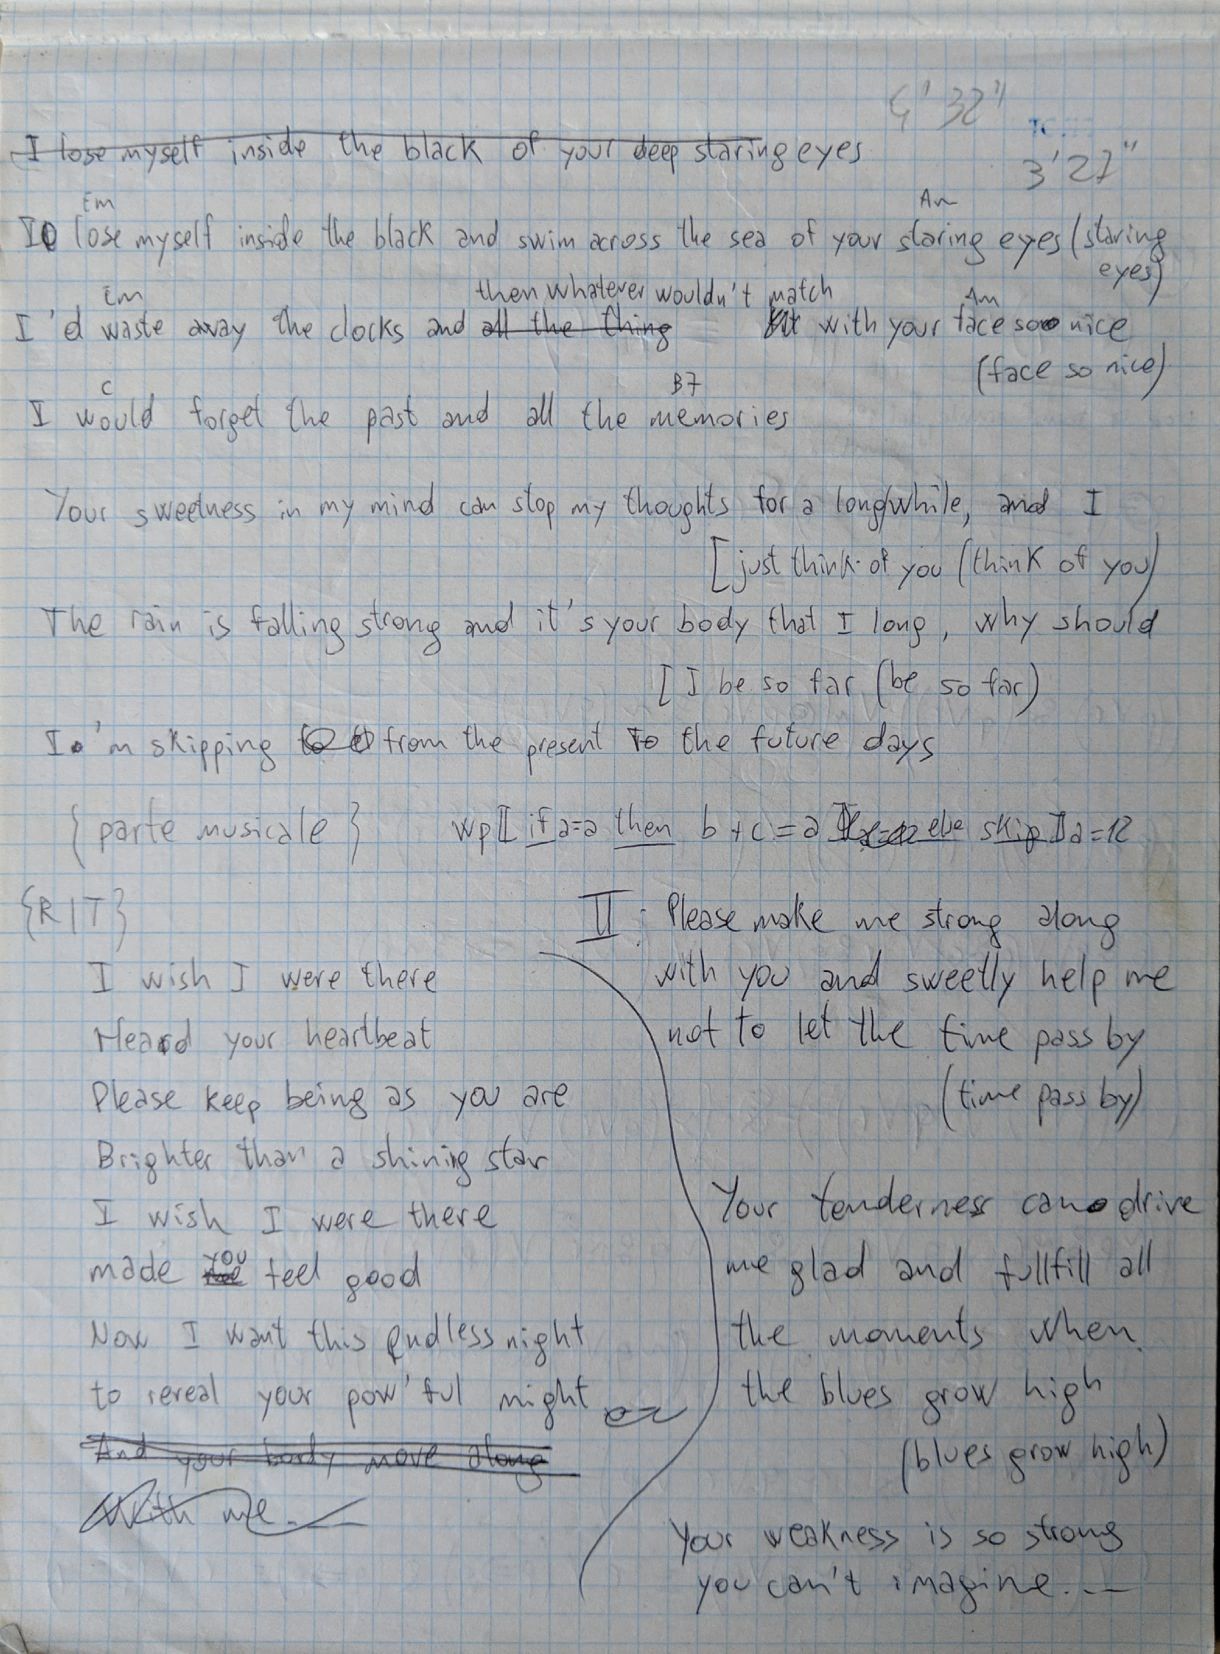 4' 32"
3'27"
I lose myself inside the black of your deep staring eyes
Em Am
I lose myself inside the black and swim across the sea of your staring eyes (staring
eyes)
then whatever wouldn't match
Em Am
I'd waste away the clocks and all the thing with your face so nice
(face so nice)
C B7
I would forget the past and all the memories
Your sweetness in my mind can stop my thoughts for a long while, and I
[just think of you (think of you)
The rain is falling strong and it's your body that I long, why should
[I be so far (be so far)
I'm skipping from the present to the future days
{parte musicale} wp[[ if a=a then b+c=a else skip ]] a=12
{RIT}
I wish I were there
Heard your heartbeat
Please keep being as you are
Brighter than a shining star
I wish I were there
made you feel good
Now I want this endless night
to reveal your pow'ful might
And your body move along
With me...
II: Please make me strong along
with you and sweetly help me
not to let the time pass by
(time pass by)
Your tenderness can drive
me glad and fullfill all
the moments when
the blues grow high
(blues grow high)
Your weakness is so strong
you can't imagine...